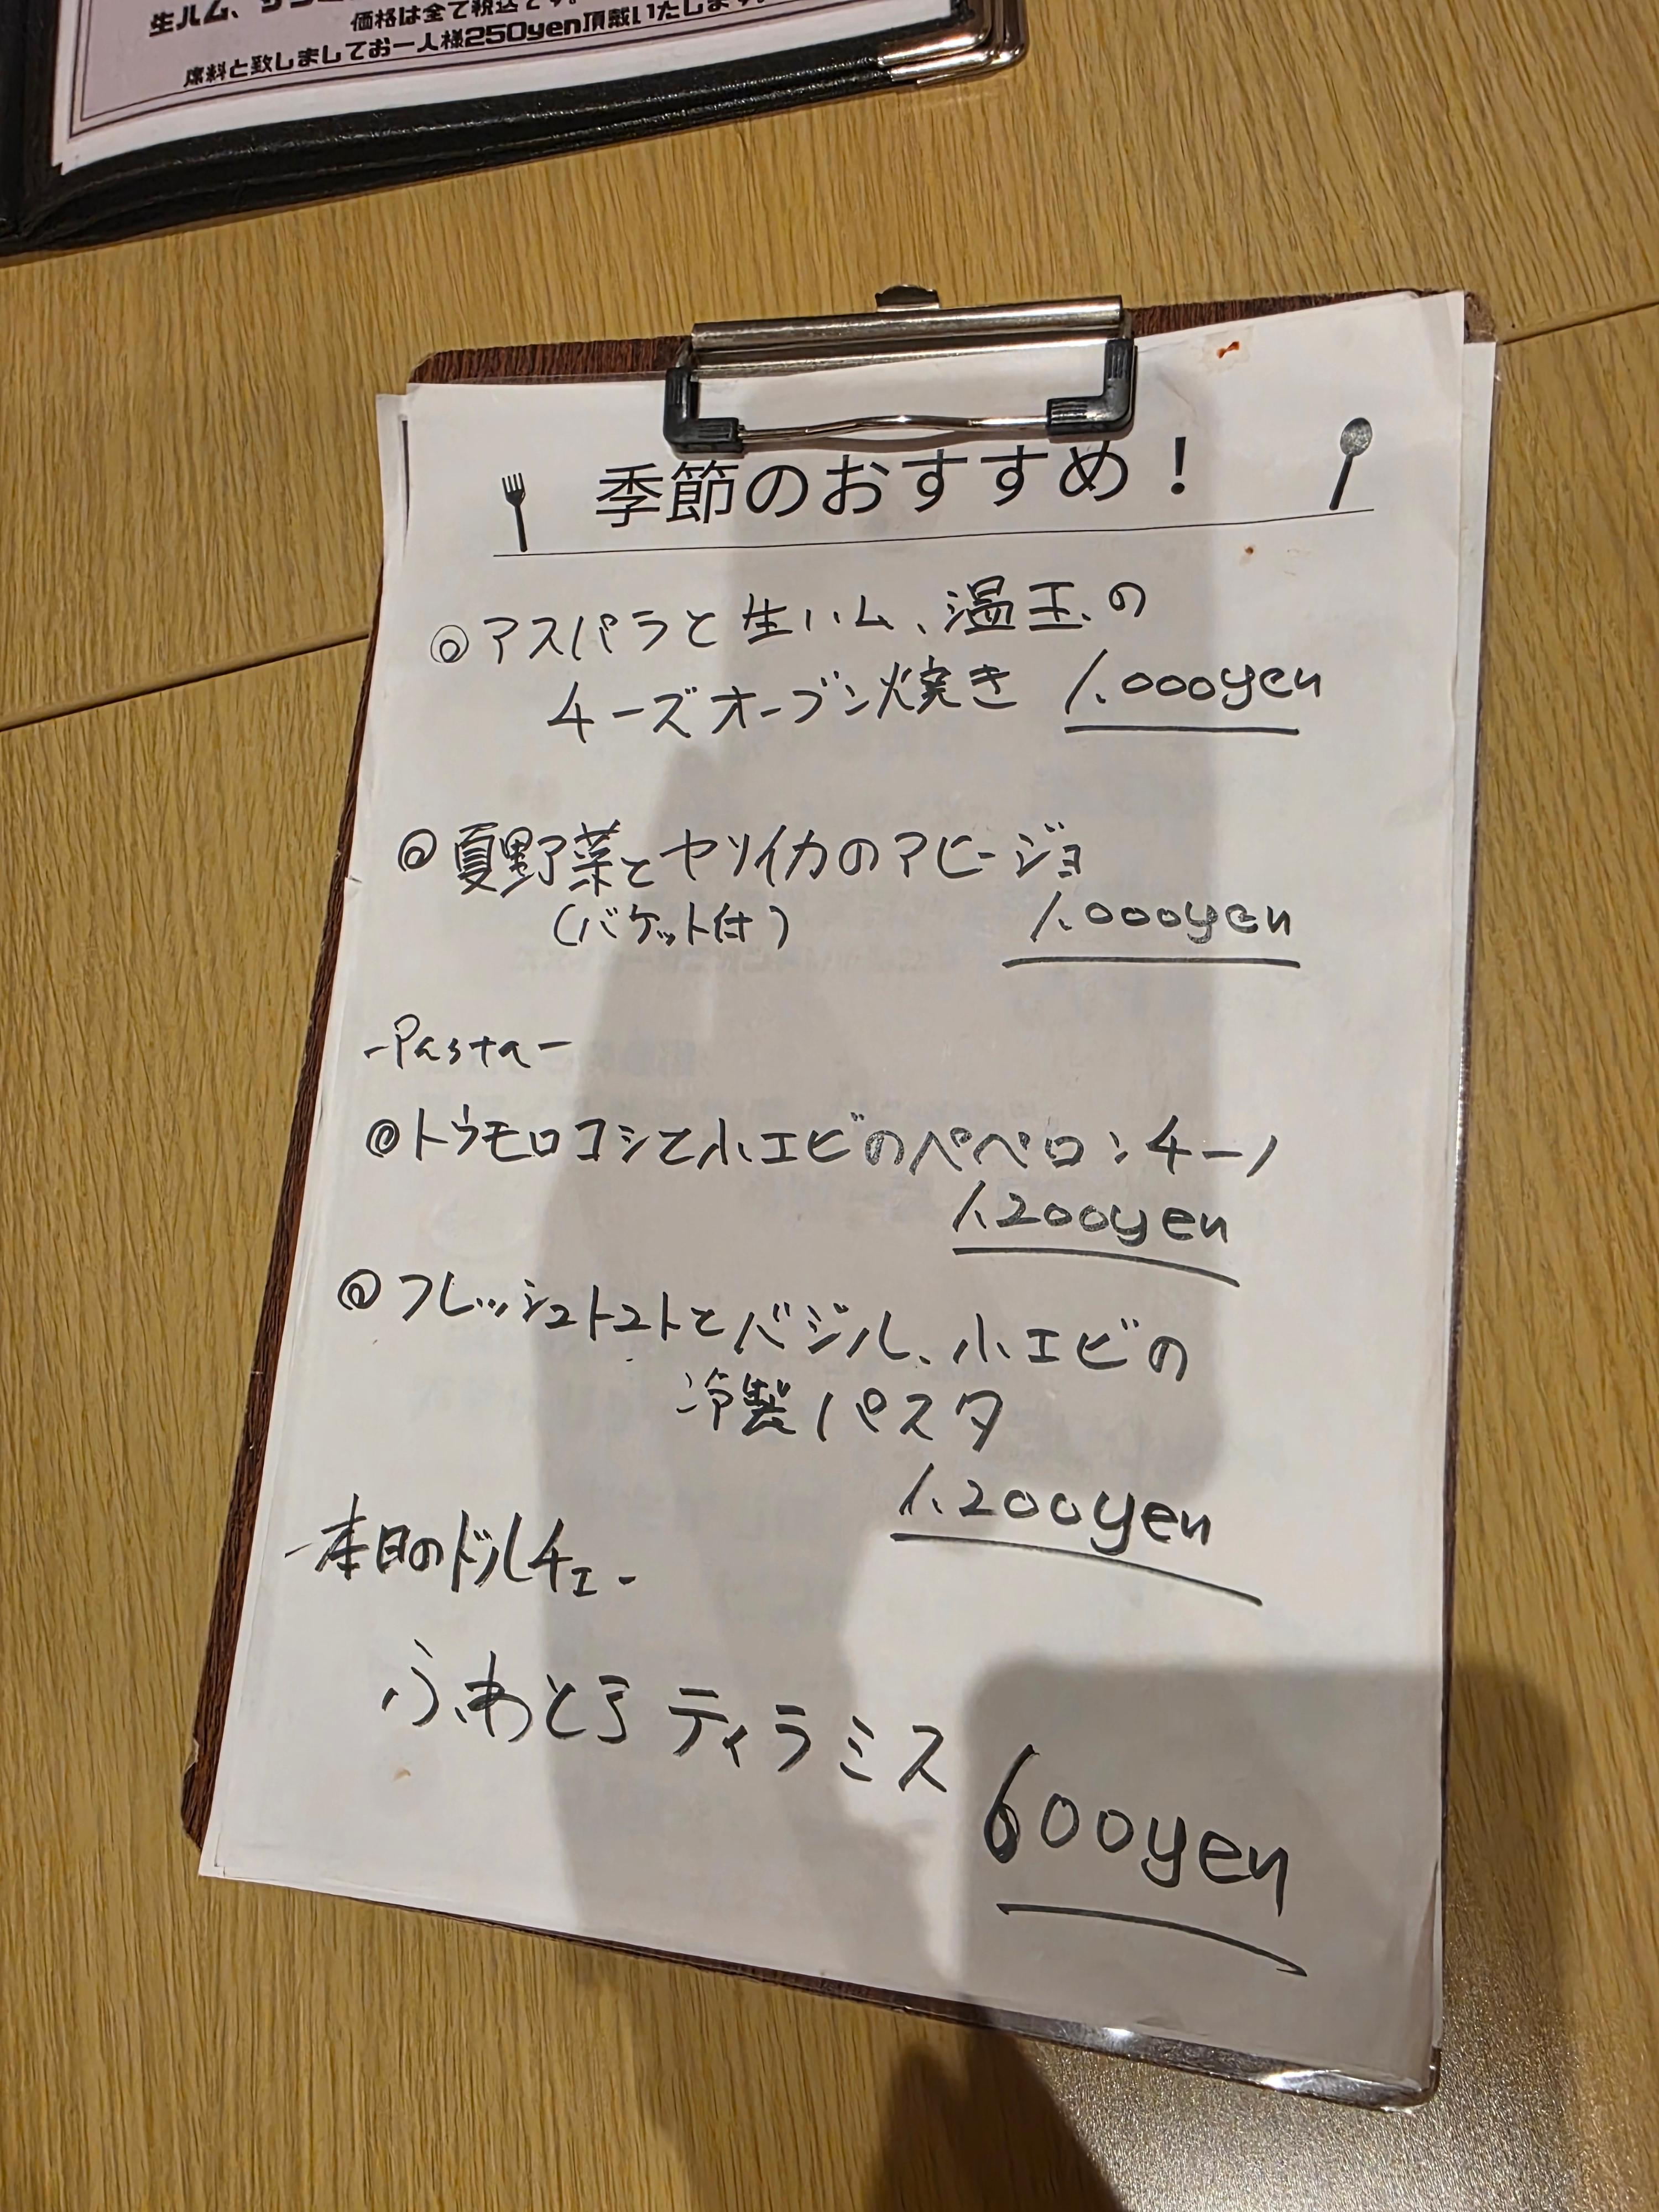 生ハム、
価格は全て税込です。
席料と致しましてお一人様250yen頂戴いたします
季節のおすすめ!
◎アスパラと生ハム、温玉の
チーズオーブン焼き 1.000yen
◎夏野菜とヤリイカのアヒージョ
(バケット付) 1.000yen
-Pasta-
◎トウモロコシと小エビのペペロンチーノ
1.200yen
◎フレッシュトマトとバジル、小エビの
冷製パスタ
1.200yen
-本日のドルチェ-
ふわとろティラミス
600yen